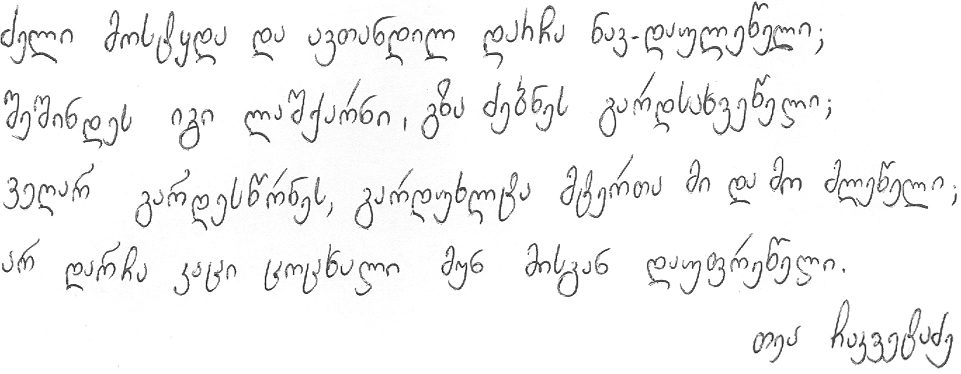 ძელი მოსტყდა და ავთანდილ დარჩა ნავ-დაულეწელი;
შეშინდეს იგი ლაშქარნი, გზა ძებნეს გარდსახვეწელი;
ვეღარ გარდესწრნეს, გარდუხლტა მტერთა მი და მო მლეწელი;
არ დარჩა კაცი ცოცხალი მუნ მისგან დაუფრეწელი.
თეა ჩაკვეტაძე